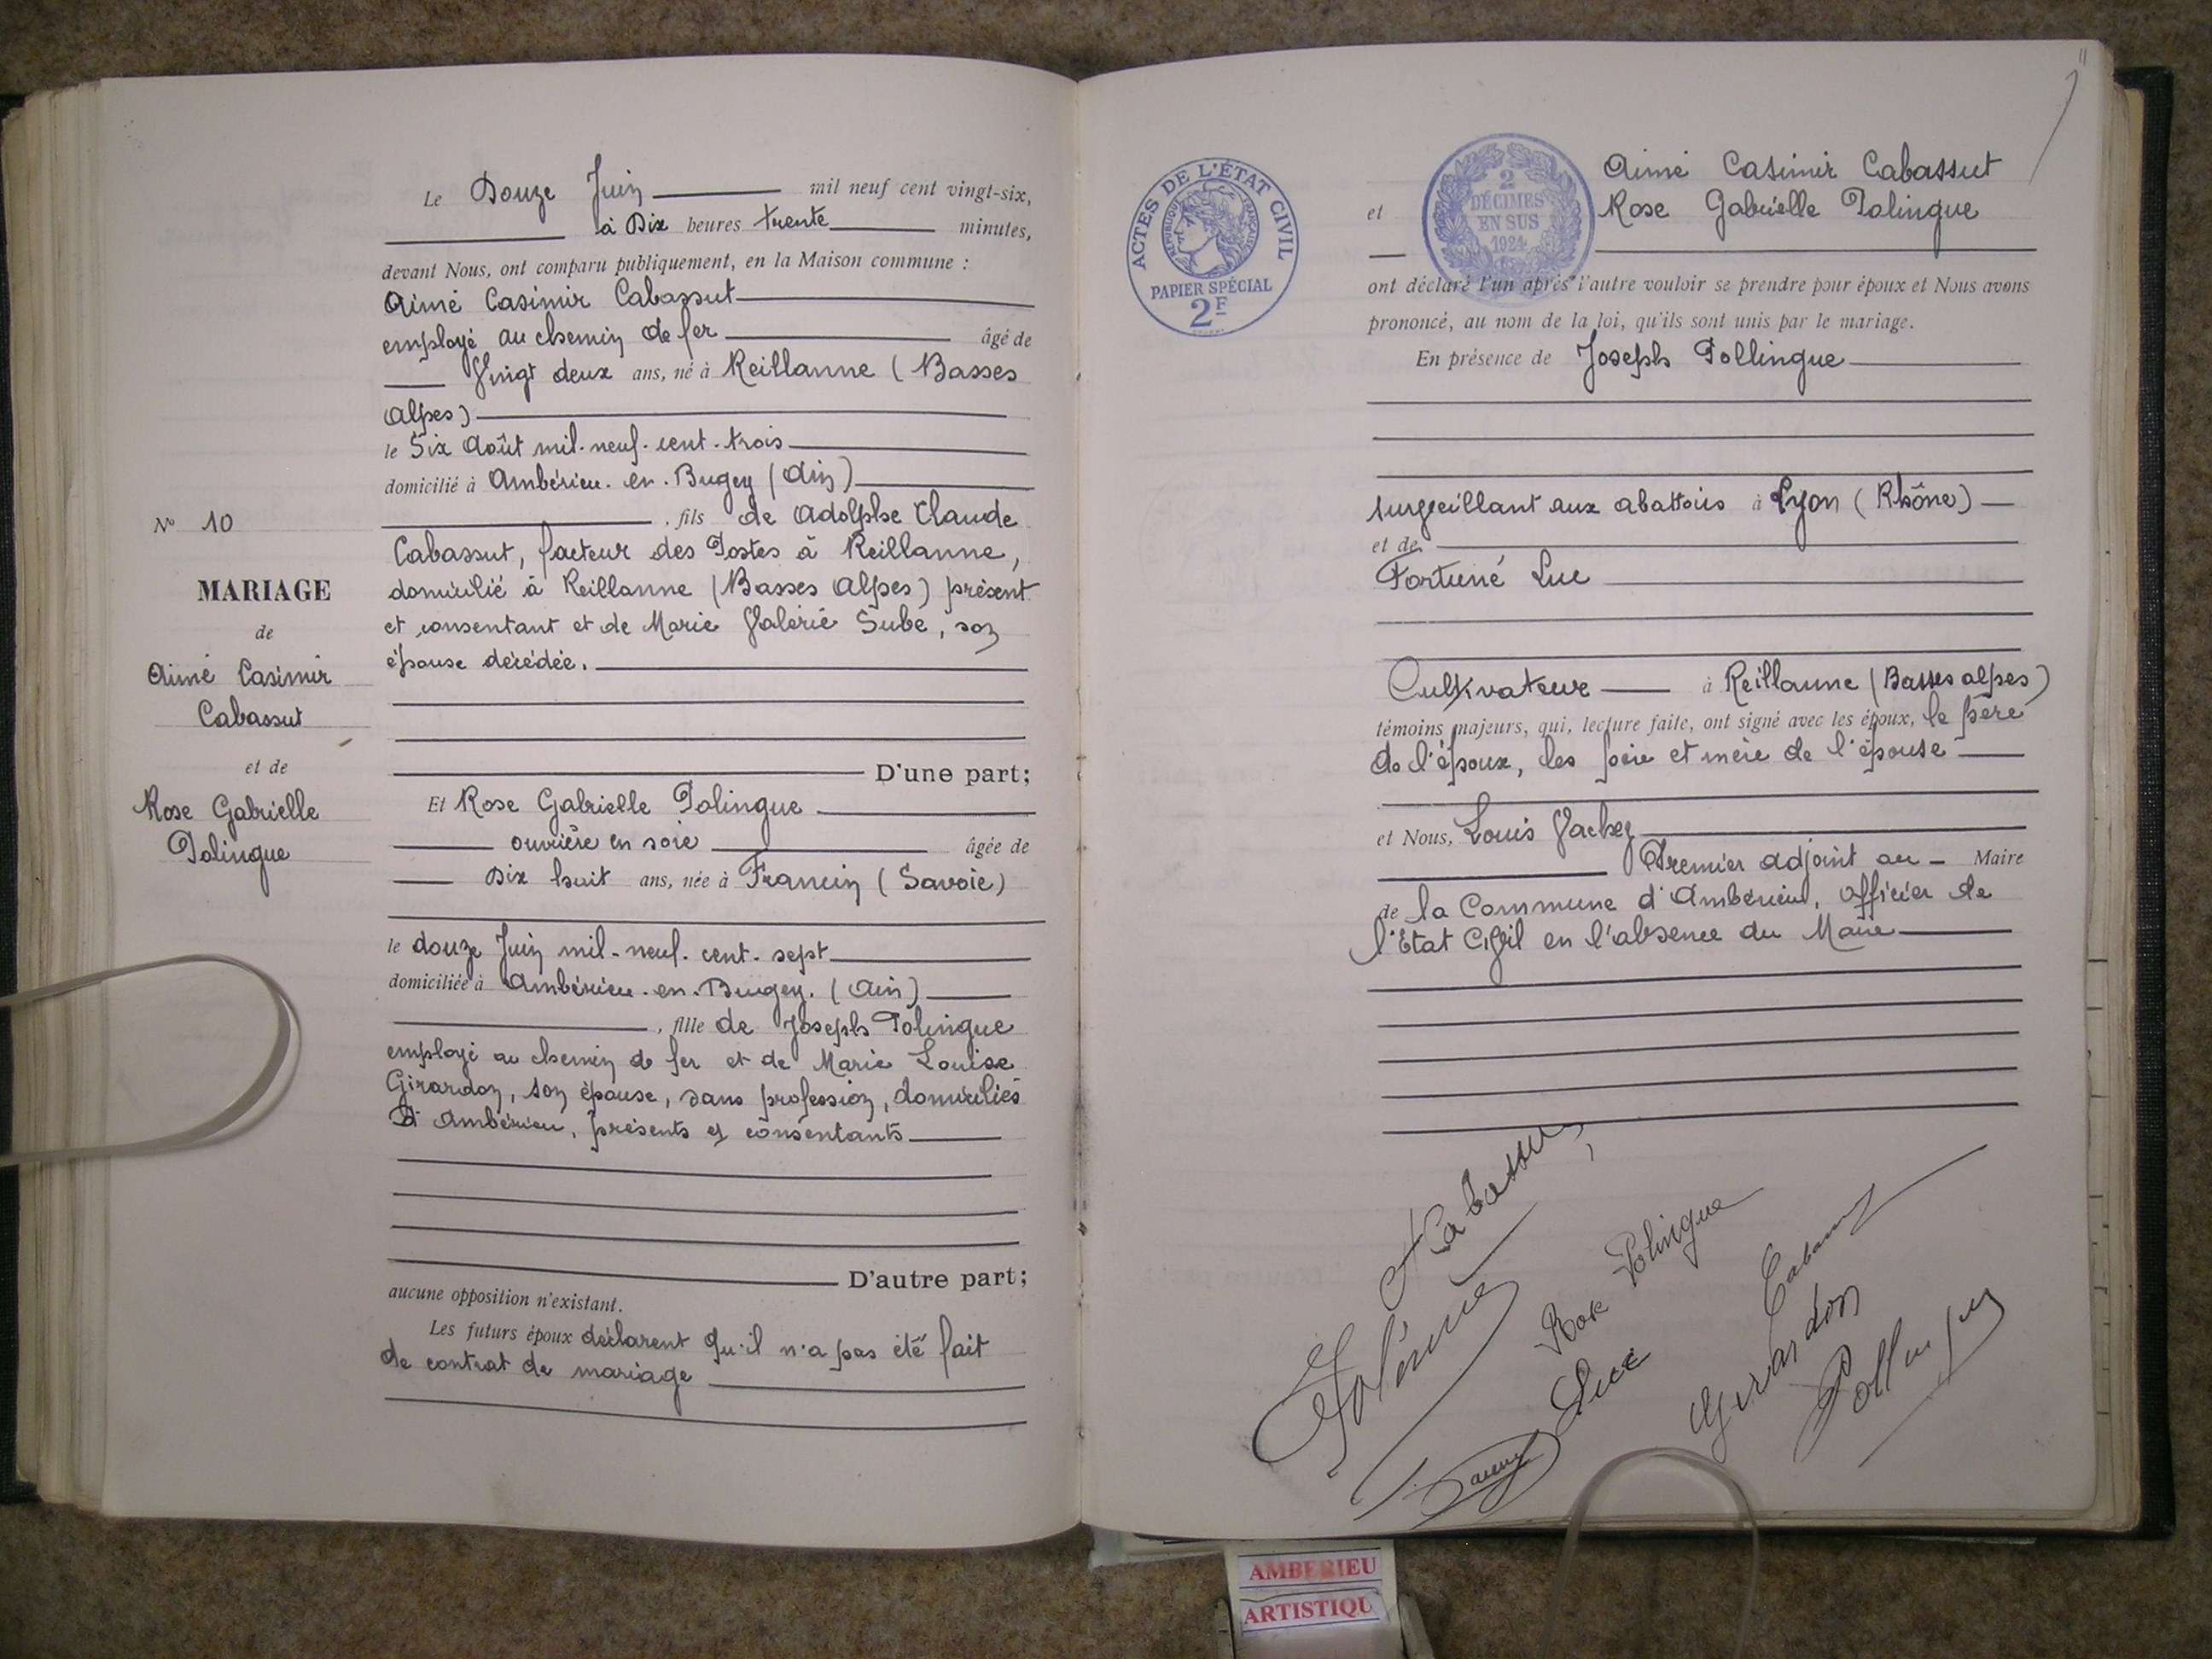 Le Douze Juin mil neuf cent vingt-six,
à Dix heures trente minutes,
devant Nous, ont comparu publiquement, en la Maison commune :
Aimé Casimir Cabassut
employé au chemin de fer âgé de
Vingt deux ans, né à Reillanne (Basses
Alpes)
le Six Août mil-neuf-cent-trois
domicilié à Ambérieu-en-Bugey (Ain)
, fils de Adolphe Claude
Cabassut, facteur des Postes à Reillanne,
domicilié à Reillanne (Basses Alpes) présent
et consentant et de Marie Valérie Sube, son
épouse décédée.
D'une part;
N° 10
MARIAGE
de
Aimé Casimir
Cabassut
et de
Rose Gabrielle
Polingue
Et Rose Gabrielle Polingue
ouvrière en soie âgée de
Dix huit ans, née à Francin (Savoie)
le douze Juin mil-neuf-cent-sept
domiciliée à Ambérieu-en-Bugey. (Ain)
, fille de Joseph Polingue
employé au chemin de fer et de Marie Louise
Girardon, son épouse, sans profession, domiciliés
à Ambérieu, présents et consentants
D'autre part;
aucune opposition n'existant.
Les futurs époux déclarent qu'il n'a pas été fait
de contrat de mariage
11
ACTES DE L'ÉTAT CIVIL
RÉPUBLIQUE FRANÇAISE
PAPIER SPÉCIAL
2F
2
DÉCIMES
EN SUS
1924
Aimé Casimir Cabassut
et Rose Gabrielle Polingue
ont déclaré l'un après l'autre vouloir se prendre pour époux et Nous avons
prononcé, au nom de la loi, qu'ils sont unis par le mariage.
En présence de Joseph Pollingue
surveillant aux abattoirs à Lyon (Rhône)
et de
Fortuné Luc
Cultivateur à Reillanne (Basses alpes)
témoins majeurs, qui, lecture faite, ont signé avec les époux, le père
de l'époux, les père et mère de l'épouse
et Nous, Louis Vachez
Premier adjoint au Maire
de la Commune d'Ambérieu, officier de
l'Etat Civil en l'absence du Maire
Cabassut
Rose Polingue
Cabassut
Luc
Girardon
AMBERIEU
ARTISTIQU